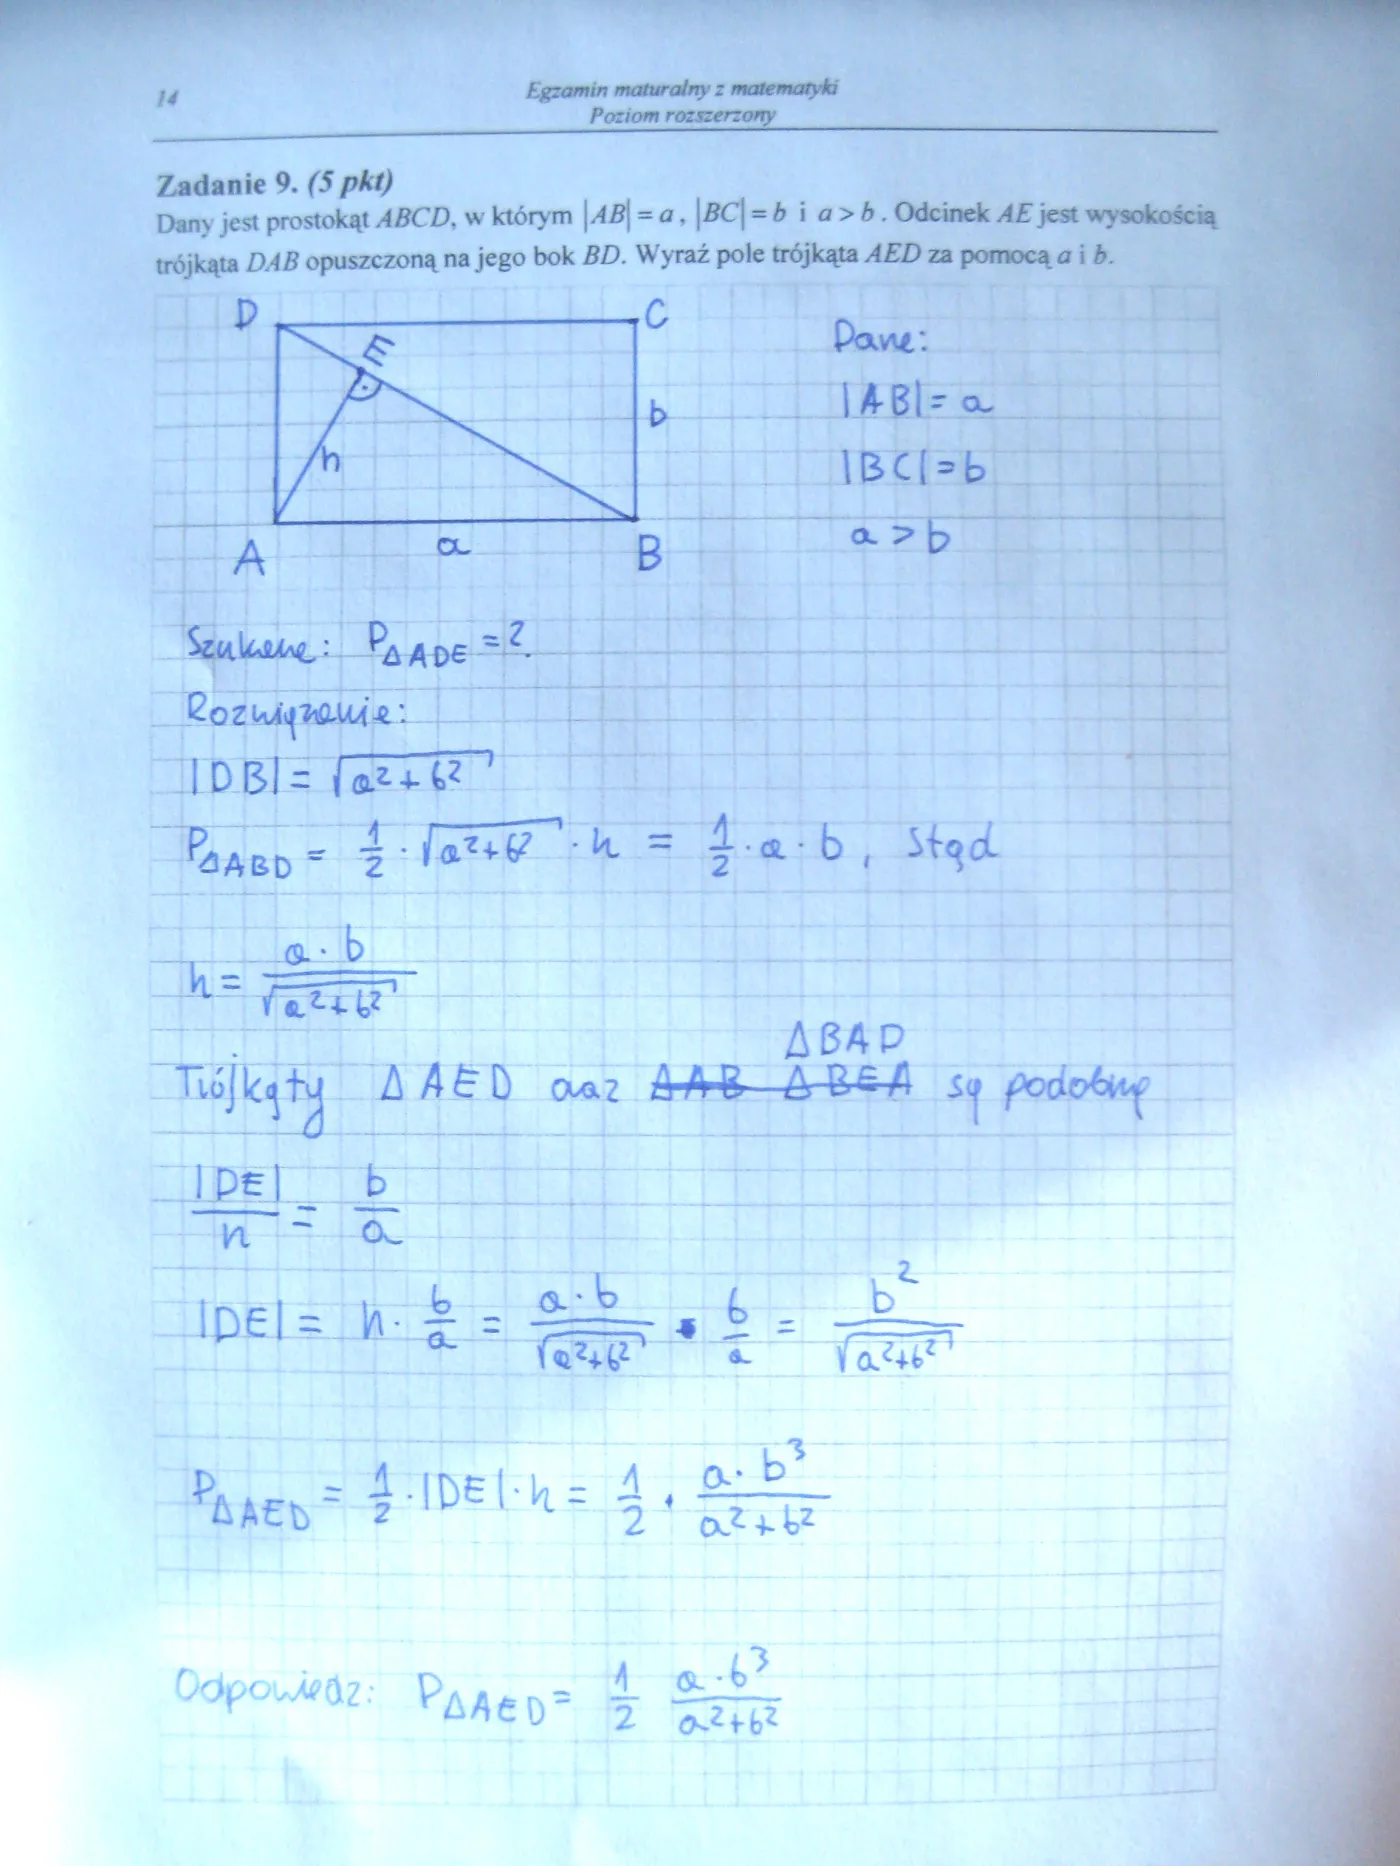 14
Egzamin maturalny z matematyki
Poziom rozszerzony
Zadanie 9. (5 pkt)
Dany jest prostokąt ABCD, w którym |AB| = a, |BC| = b i a > b. Odcinek AE jest wysokością
trójkąta DAB opuszczoną na jego bok BD. Wyraź pole trójkąta AED za pomocą a i b.
D C
E
b
h
A a B
Dane:
|AB| = a
|BC| = b
a > b
Szukane: P△ADE = ?
Rozwiązanie:
|DB| = √(a²+b²)
P△ABD = 1/2 · √(a²+b²) · h = 1/2 · a · b, stąd
h = a · b / √(a²+b²)
△BAD
Trójkąty △AED oraz ~~△AB~~ ~~△BEA~~ są podobne
|DE| / h = b / a
|DE| = h · b/a = a · b / √(a²+b²) · b/a = b² / √(a²+b²)
P△AED = 1/2 · |DE| · h = 1/2 · a · b³ / a²+b²
Odpowiedz: P△AED = 1/2 a · b³ / a²+b²